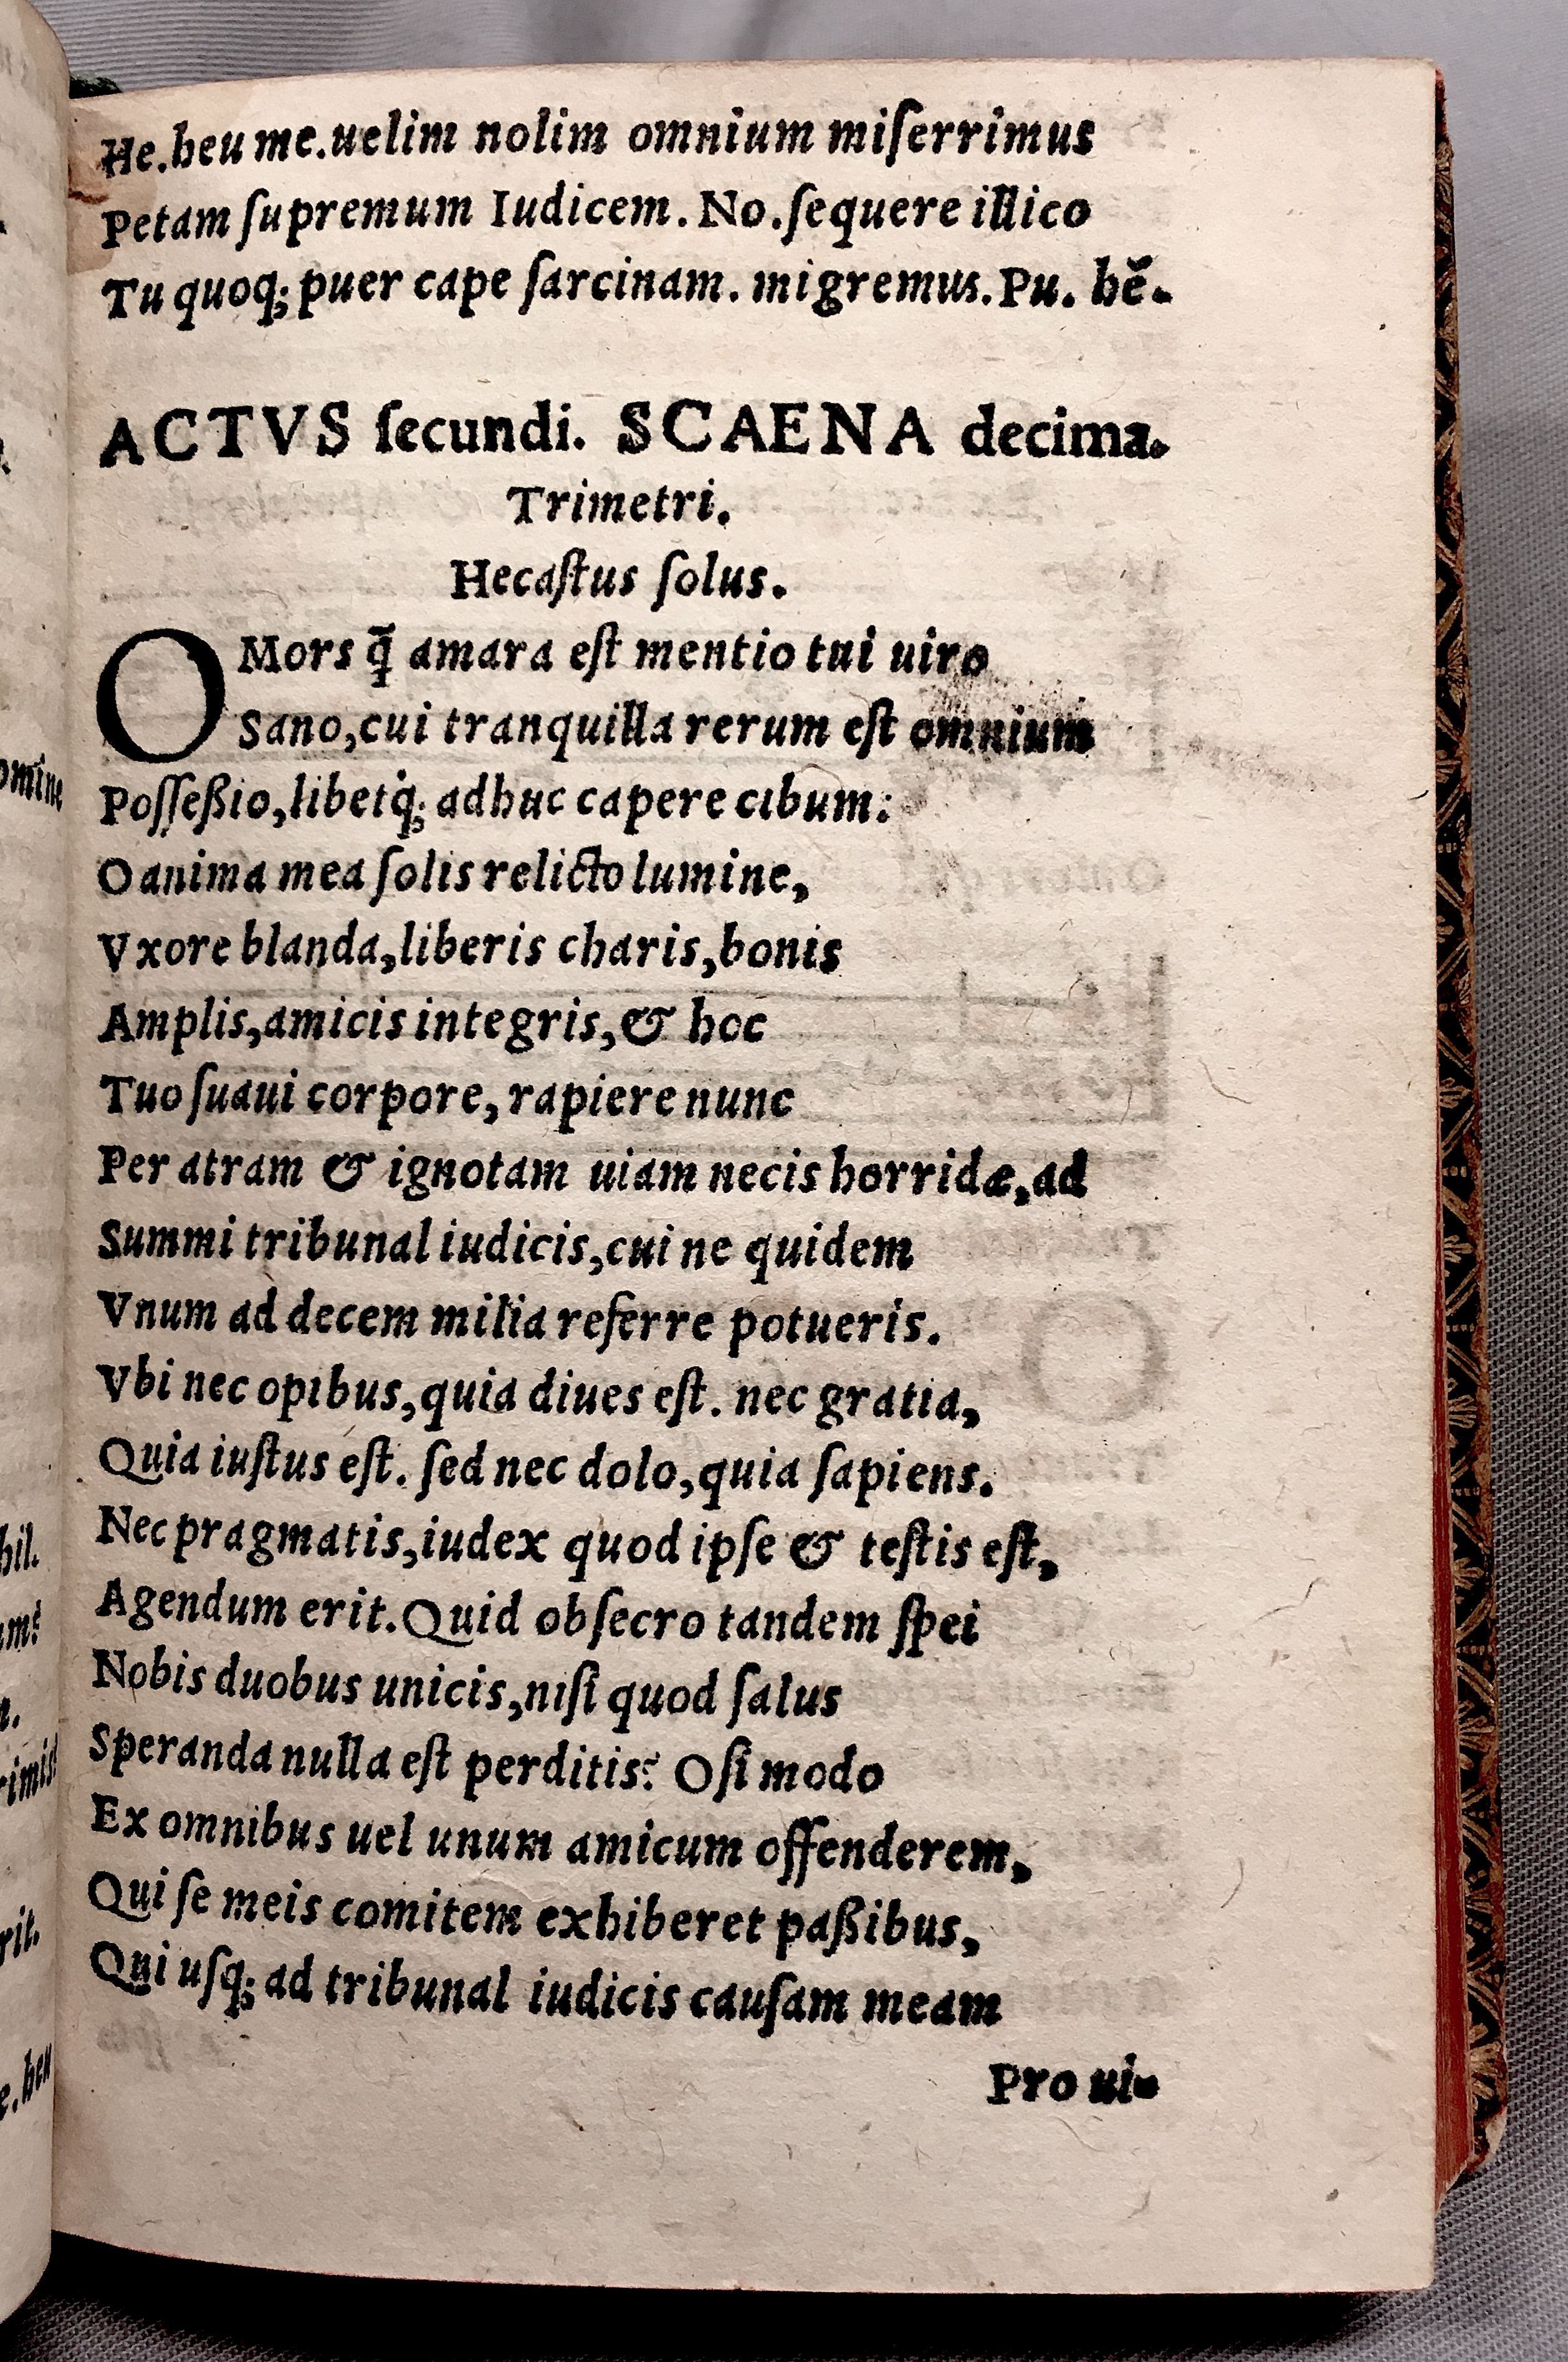 He.heu me.uelim nolim omnium miſerrimus
Petam ſupremum Iudicem. No.ſequere illico
Tu quoq; puer cape ſarcinam. migremus. Pu. hē.
ACTVS ſecundi. SCAENA decima.
Trimetri.
Hecaſtus ſolus.
O Mors q̄ amara eſt mentio tui uiro
Sano, cui tranquilla rerum eſt omnium
Poſſeßio, libetq́; adhuc capere cibum:
O anima mea ſolis relicto lumine,
Vxore blanda, liberis charis, bonis
Amplis, amicis integris, & hoc
Tuo ſuaui corpore, rapiere nunc
Per atram & ignotam uiam necis horridæ, ad
Summi tribunal iudicis, cui ne quidem
Vnum ad decem milia referre potueris.
Vbi nec opibus, quia diues eſt. nec gratia,
Quia iuſtus eſt. ſed nec dolo, quia ſapiens.
Nec pragmatis, iudex quod ipſe & teſtis eſt,
Agendum erit. Quid obſecro tandem ſpei
Nobis duobus unicis, niſi quod ſalus
Speranda nulla eſt perditis? O ſi modo
Ex omnibus uel unum amicum offenderem,
Qui ſe meis comitem exhiberet paßibus,
Qui uſq; ad tribunal iudicis cauſam meam
Pro ui-